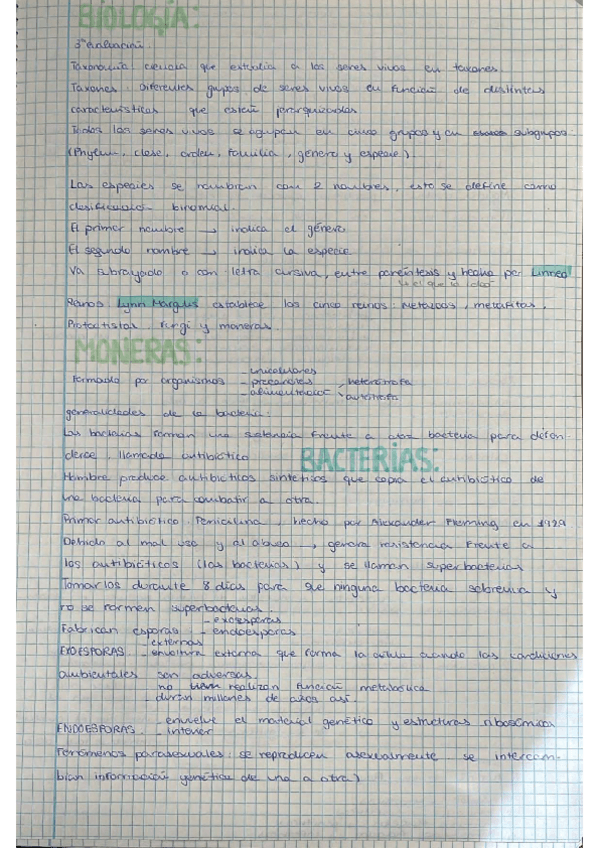 BIOLOGÍA:
3ª evaluación.
Taxonomía: ciencia que estudia a los seres vivos en taxones.
Taxones: diferentes grupos de seres vivos en función de distintas
características que están jerarquizados.
Todos los seres vivos se agrupan en cinco grupos y en subgrupos
(Phylum, clase, orden, familia, género y especie).
Las especies se nombran con 2 nombres, esto se define como
clasificación binomial.
El primer nombre → indica el género
El segundo nombre → indica la especie
Va subrayado o con letra cursiva, entre paréntesis y hecho por Linneo
↳ el que la ideó
Reinos: Lynn Margulis establece los cinco reinos: Metazoos, metafitas,
Protoctistas, Fungi y moneras.
MONERAS:
Formado por organismos - unicelulares
- procariotas
- alimentación heterótrofa
autótrofa
generalidades de la bacteria:
Las bacterias forman una sustancia frente a otra bacteria para defen-
derse, llamada antibiótico
BACTERIAS:
Hombre produce antibióticos sintéticos que copia el antibiótico de
una bacteria para combatir a otra.
Primer antibiótico: Penicilina, hecho por Alexander Fleming, en 1929
Debido al mal uso y al abuso → genera resistencia frente a
los antibióticos (las bacterias) y se llaman superbacterias
Tomarlos durante 8 días para que ninguna bacteria sobreviva y
no se formen superbacterias.
Fabrican esporas - exoesporas
- endoesporas
EXOESPORAS - externas
- envoltura externa que forma la célula cuando las condiciones
ambientales son adversas.
no realizan función metabólica
- duran millones de años así.
ENDOESPORAS - envuelve el material genético y estructuras ribosómicas
- interior
Fenómenos parasexuales: se reproducen asexualmente se intercam-
bian información genética de una a otra)